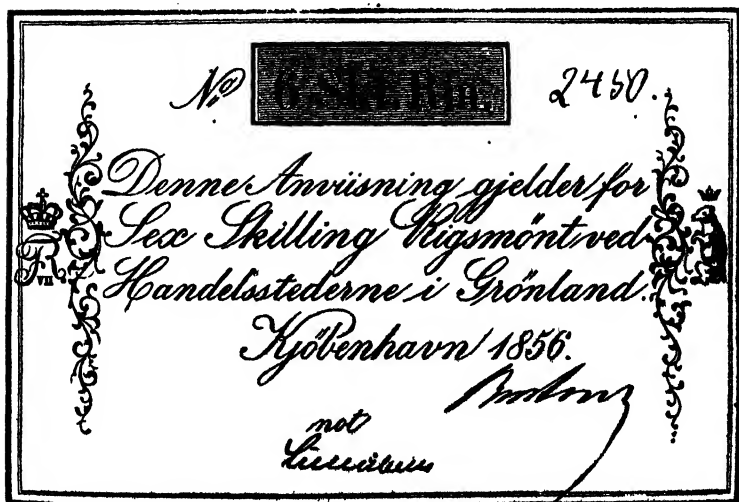 No 6 Sk. R.M. 2450.
Denne Anviisning gjelder for
Sex Skilling Rigsmönt ved
Handelsstederne i Grönland.
Kjöbenhavn 1856.
VII
not